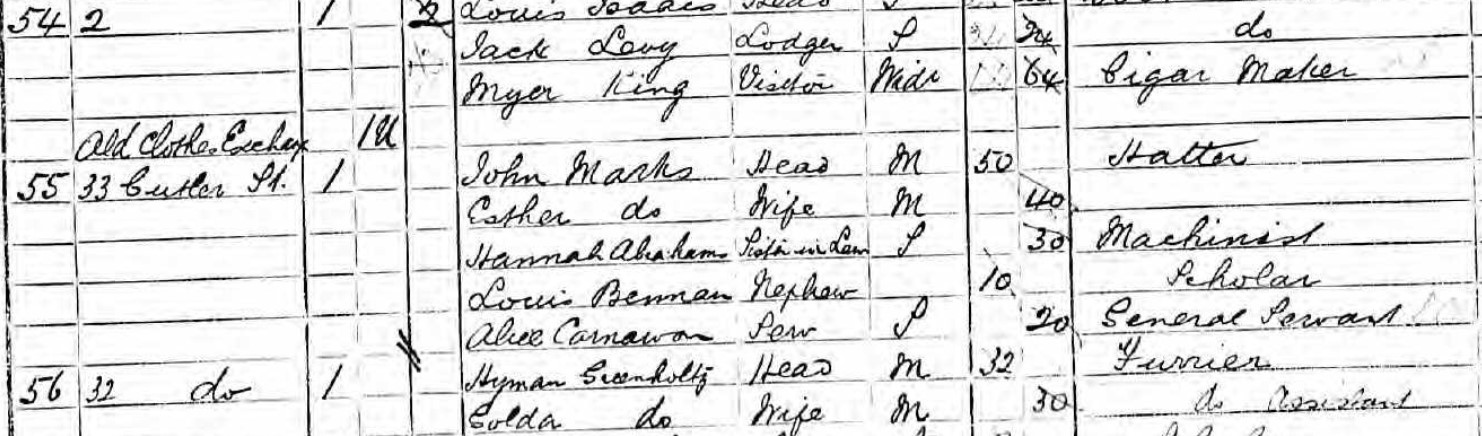 54 2 1 2 Louis Isaacs Head S
Jack Levy Lodger S do
Myer King Visitor Widr 64 Cigar Maker
Old Clothes Exchange 1U
55 33 Cutler St. 1 John Marks Head M 50 Hatter
Esther do Wife M 40
Hannah Abrahams Sister in Law S 30 Machinist
Louis Benman Nephew 10 Scholar
Alice Carnawon Serv S 20 General Servant
56 32 do 1 Hyman Greenholtz Head M 32 Furrier
Golda do Wife M 30 do Assistant